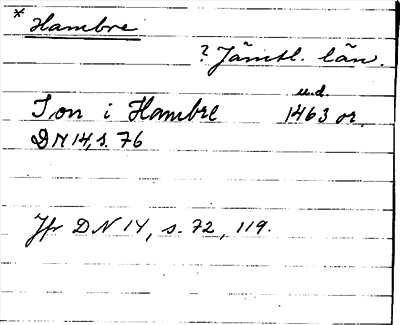 * Hambre
? Jämtl. län.
u.d.
Ion i Hambre 1463 or.
DN 14, s. 76
Jfr DN 14, s. 72, 119.